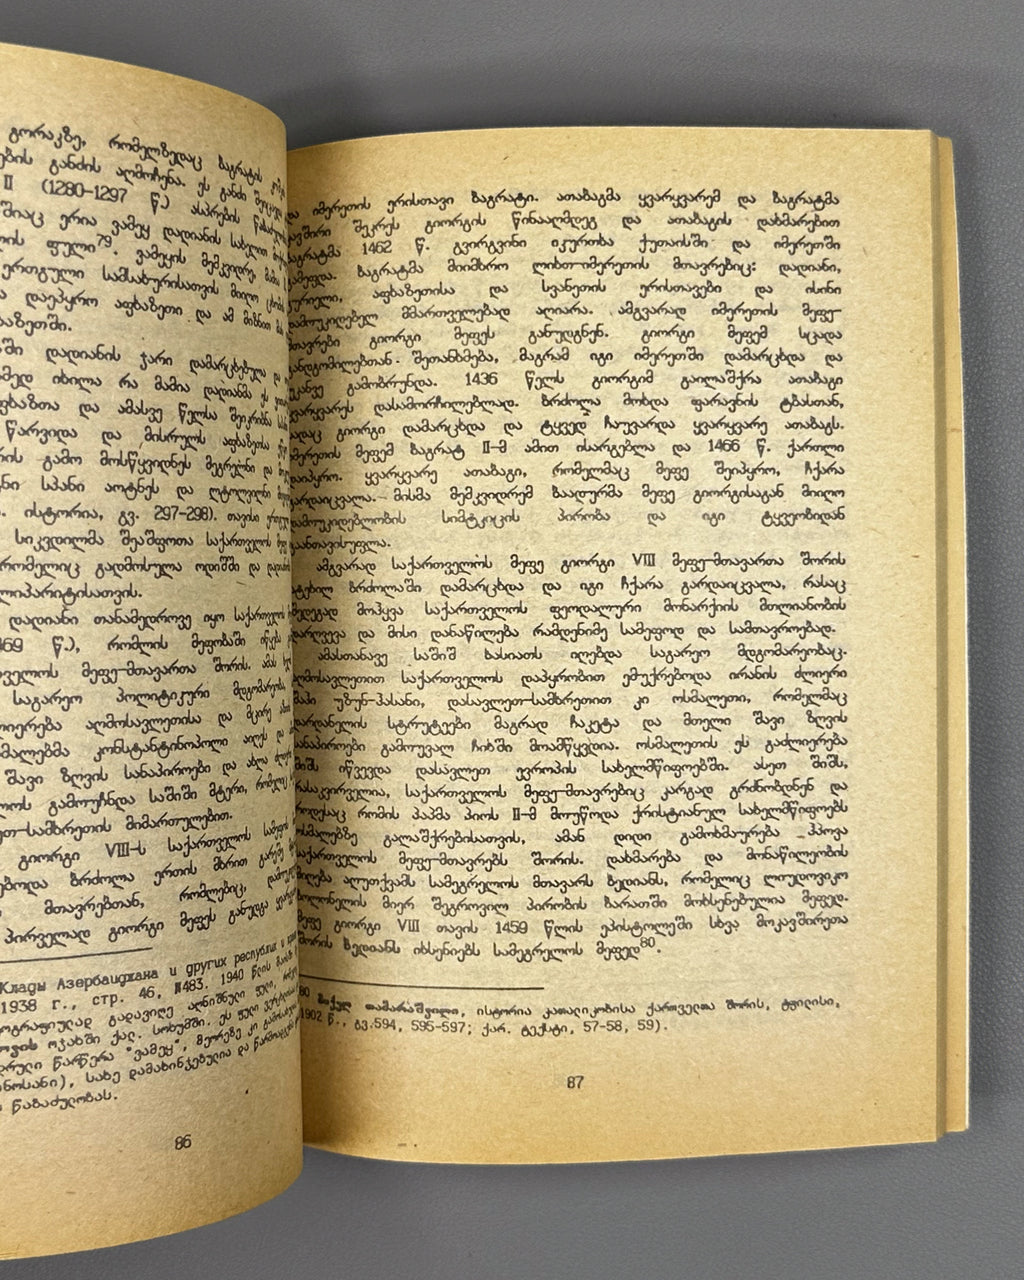 გორაკზე, რომელზედაც ბაგრატის
ების განძის აღმოჩენა. ეს განძი
II (1280-1297 წ.) ასპრების
შიაც ერია ვამეყ დადიანის სახელით
ფული79. ვამეყის მემკვიდრე
ერთგული სამსახურისათვის მიიღო
დაეპყრო აფხაზეთი და ამ მიზნით
აზეთში.
ში დადიანის ჯარი დამარცხებულა და
იხილა რა მამია დადიანმა ეს
და ამასვე წელსა შეიკრიბნა
წარვიდა და მისრულს აფხაზეთსა
გამო მოსწყვიდნეს მეგრელნი და
სპანი აოტნეს და
ისტორია, გვ. 297-298). თავისი
სიკვდილმა შეაშფოთა საქართველოს
რომელიც გადმოსულა ოდიშში და
ლიპარიტისათვის.
დადიანი თანამედროვე იყო საქართველოს
წ.), რომლის მეფობაში იწყება
მეფე-მთავართა შორის. ამას
საგარეო პოლიტიკური მდგომარეობა,
აღმოსავლეთისა და მცირე
კონსტანტინოპოლი აიღეს და
შავი ზღვის სანაპიროები და
გამოუჩნდა საშიში მტერი, რომელიც
სამხრეთის მიმართულებით.
გიორგი VIII-ს საქართველოს სამეფოს
ბრძოლა ერთის მხრით გარეშე
მთავრებთან, რომლებიც,
პირველად გიორგი მეფეს განუდგა
Клады Азербайджана и других республик и
1938 г., стр. 46, №483. 1940 წლის
გადავიღე აღნიშნული ფული,
ოჯახში ქალ. სოხუმში. ეს ფული
წარწერა "ვამეყ", მეორეზე კი
სახე დამახინჯებულია და
წაბაძულობას.
86
და იმერეთის ერისთავი ბაგრატი. ათაბაგმა ყვარყვარემ და ბაგრატმა
კავშირი შეკრეს გიორგის წინააღმდეგ და ათაბაგის დახმარებით
ბაგრატმა 1462 წ. გვირგვინი იკურთხა ქუთაისში და იმერეთში
გამეფდა. ბაგრატმა მიიმხრო ლიხთ-იმერეთის მთავრებიც: დადიანი,
გურიელი, აფხაზეთისა და სვანეთის ერისთავები და ისინი
დამოუკიდებელ მმართველებად აღიარა. ამგვარად იმერეთის მეფე-
მთავრები გიორგი მეფეს განუდგნენ. გიორგი მეფემ სცადა
განდგომილებთან შეთანხმება, მაგრამ იგი იმერეთში დამარცხდა და
უკანვე გამობრუნდა. 1436 წელს გიორგიმ გაილაშქრა ათაბაგი
ყვარყვარეს დასამორჩილებლად. ბრძოლა მოხდა ფარავნის ტბასთან,
სადაც გიორგი დამარცხდა და ტყვედ ჩაუვარდა ყვარყვარე ათაბაგს.
იმერეთის მეფემ ბაგრატ II-მ ამით ისარგებლა და 1466 წ. ქართლი
დაიპყრო. ყვარყვარე ათაბაგი, რომელმაც მეფე შეიპყრო, ჩქარა
გარდაიცვალა. მისმა მემკვიდრემ ბაადურმა მეფე გიორგისაგან მიიღო
დამოუკიდებლობის სიმტკიცის პირობა და იგი ტყვეობიდან
გაანთავისუფლა.
ამგვარად საქართველოს მეფე გიორგი VIII მეფე-მთავართა შორის
ატეხილ ბრძოლაში დამარცხდა და იგი ჩქარა გარდაიცვალა, რასაც
შედეგად მოჰყვა საქართველოს ფეოდალური მონარქიის მთლიანობის
დარღვევა და მისი დანაწილება რამდენიმე სამეფოდ და სამთავროებად.
ამასთანავე საშიშ ხასიათს იღებდა საგარეო მდგომარეობაც.
აღმოსავლეთით საქართველოს დაპყრობით ემუქრებოდა ირანის ძლიერი
შაჰი უზუნ-ჰასანი, დასავლეთ-სამხრეთით კი ოსმალეთი, რომელმაც
დარდანელის სტრუტეები მაგრად ჩაკეტა და მთელი შავი ზღვის
სანაპიროები გამოუვალ ჩიხში მოამწყვდია. ოსმალეთის ეს გაძლიერება
შიშს იწვევდა დასავლეთ ევროპის სახელმწიფოებში. ასეთ შიშს,
რასაკვირველია, საქართველოს მეფე-მთავრებიც კარგად გრძნობდნენ და
როდესაც რომის პაპმა პიოს II-მ მოუწოდა ქრისტიანულ სახელმწიფოებს
ოსმალებზე გალაშქრებისათვის, ამან დიდი გამოხმაურება ჰპოვა
საქართველოს მეფე-მთავრებს შორის. დახმარება და მონაწილეობის
მიღება აღუთქვამს სამეგრელოს მთავარს ბედიანს, რომელიც ლიუდოვიკო
ბოლონელის მიერ შეგროვილ პირობის ბარათში მოხსენებულია მეფედ.
მეფე გიორგი VIII თავის 1459 წლის ეპისტოლეში სხვა მოკავშირეთა
შორის ბედიანს იხსენიებს სამეგრელოს მეფედ80.
80 მიქელ თამარაშვილი, ისტორია კათალიკობისა ქართველთა შორის, ტფილისი,
1902 წ., გვ.594, 595-597; ქარ. ტექსტი, 57-58, 59).
87